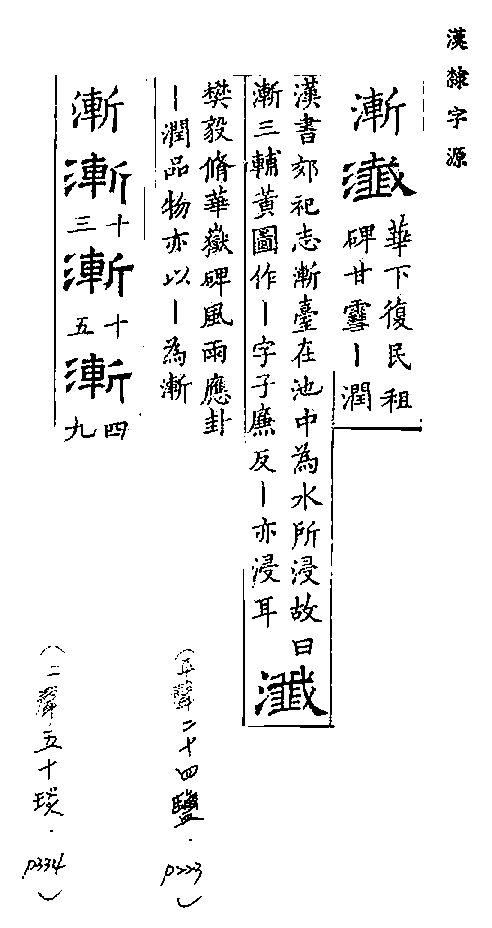 漢隸字源
漸
瀸 華下復民租碑甘霅丨潤
漢書郊祀志漸臺在池中為水所浸故曰
漸三輔黃圖作丨字子廉反丨亦浸耳
瀸
樊毅脩華嶽碑風雨應卦
丨潤品物亦以丨為漸
漸
漸十三漸十五漸四九
(平聲二十四鹽.p223)
(上聲五十琰.p334)